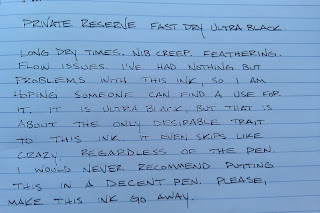 PRIVATE RESERVE FAST DRY ULTRA BLACK.
LONG DRY TIMES. NIB CREEP. FEATHERING.
FLOW ISSUES. I'VE HAD NOTHING BUT
PROBLEMS WITH THIS INK, SO I AM
HOPING SOMEONE CAN FIND A USE FOR
IT. IT IS ULTRA BLACK, BUT THAT IS
ABOUT THE ONLY DESIRABLE TRAIT
TO THIS INK. IT EVEN SKIPS LIKE
CRAZY. REGARDLESS OF THE PEN.
I WOULD NEVER RECOMMEND PUTTING
THIS IN A DECENT PEN. PLEASE,
MAKE THIS INK GO AWAY.